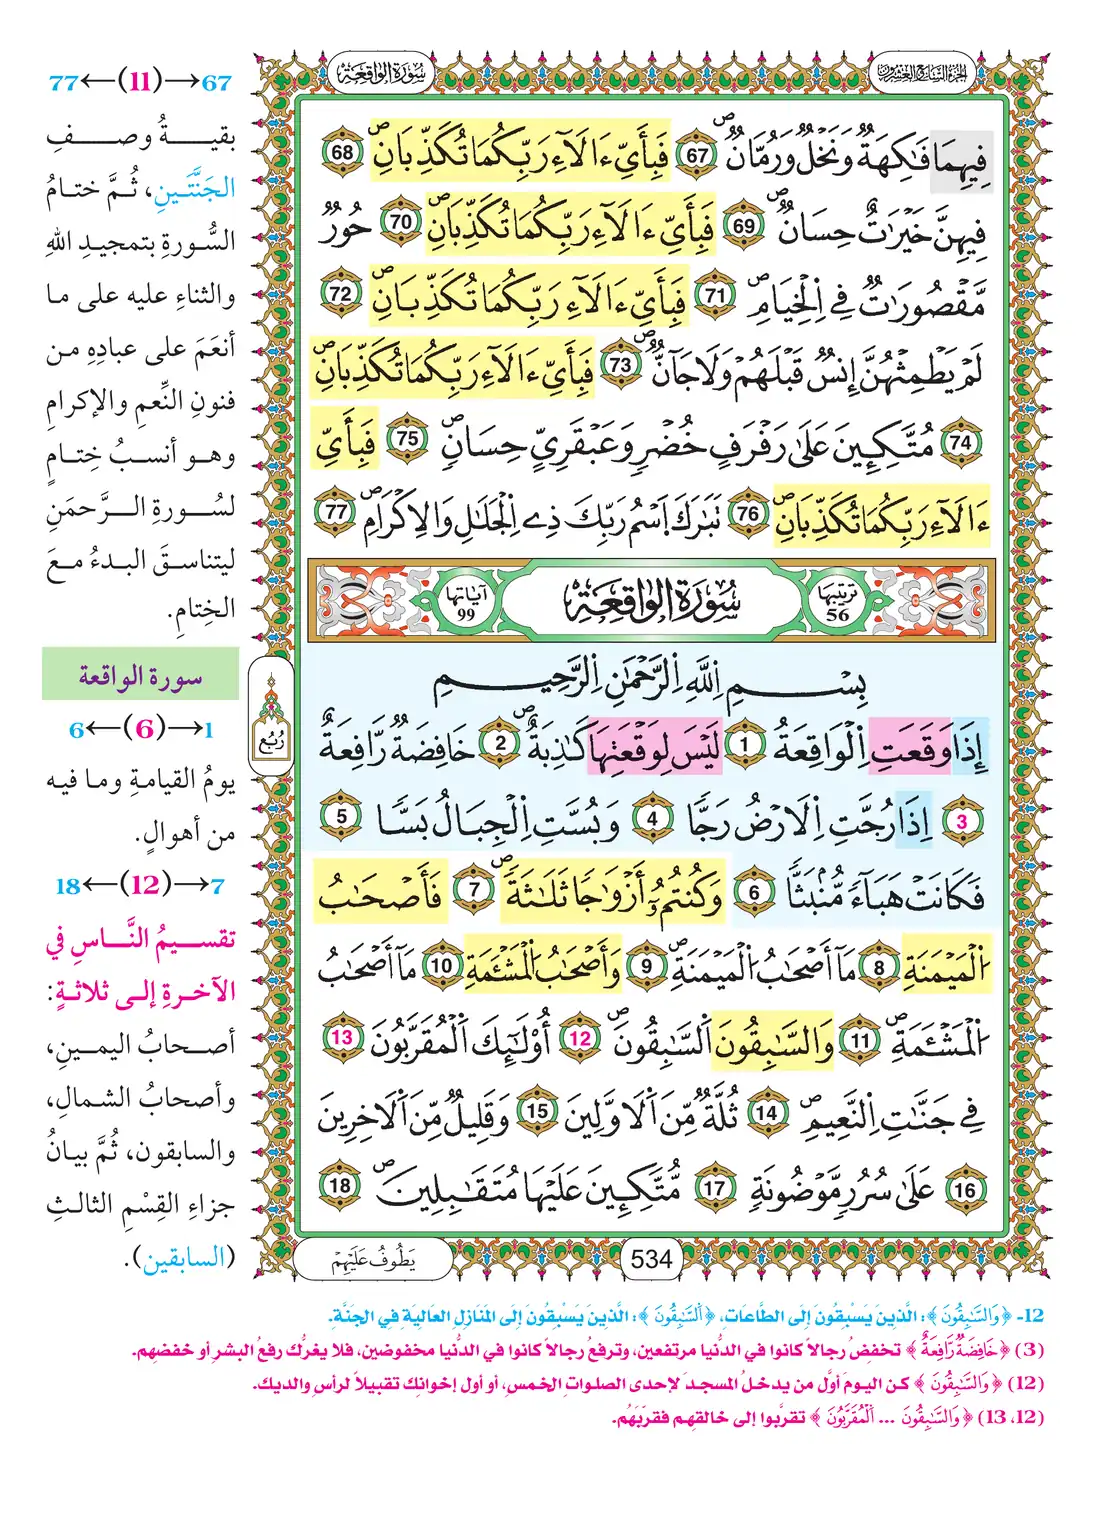 سُورَةُ الوَاقِعَة
الجُزْءُ السَّابِعُ وَالعِشْرُونَ
فِيهِمَا فَٰكِهَةٌ وَنَخْلٌ وَرُمَّانٌ 67 فَبِأَيِّ ءَالَآءِ رَبِّكُمَا تُكَذِّبَانِ 68
فِيهِنَّ خَيْرَٰتٌ حِسَانٌ 69 فَبِأَيِّ ءَالَآءِ رَبِّكُمَا تُكَذِّبَانِ 70 حُورٌ
مَّقْصُورَٰتٌ فِي اِلْخِيَامِ 71 فَبِأَيِّ ءَالَآءِ رَبِّكُمَا تُكَذِّبَانِ 72
لَمْ يَطْمِثْهُنَّ إِنسٌ قَبْلَهُمْ وَلَا جَآنٌّ 73 فَبِأَيِّ ءَالَآءِ رَبِّكُمَا تُكَذِّبَانِ
74 مُتَّكِـِٔينَ عَلَىٰ رَفْرَفٍ خُضْرٍ وَعَبْقَرِيٍّ حِسَانٍ 75 فَبِأَيِّ
ءَالَآءِ رَبِّكُمَا تُكَذِّبَانِ 76 تَبَٰرَكَ اَسْمُ رَبِّكَ ذِے اِلْجَلَٰلِ وَالِاكْرَامِ 77
ترتيبها 56
سُورَةُ الوَاقِعَة
آياتها 99
بِسْمِ اِللَّهِ اِلرَّحْمَٰنِ اِلرَّحِيمِ
إِذَا وَقَعَتِ اِلْوَاقِعَةُ 1 لَيْسَ لِوَقْعَتِهَا كَاذِبَةٌ 2 خَافِضَةٌ رَّافِعَةٌ
3 إِذَا رُجَّتِ اِلَارْضُ رَجًّا 4 وَبُسَّتِ اِلْجِبَالُ بَسًّا 5
فَكَانَتْ هَبَآءً مُّنۢبَثًّا 6 وَكُنتُمُۥٓ أَزْوَٰجًا ثَلَٰثَةً 7 فَأَصْحَٰبُ
اُلْمَيْمَنَةِ 8 مَآ أَصْحَٰبُ اُلْمَيْمَنَةِ 9 وَأَصْحَٰبُ اُلْمَشْـَٔمَةِ 10 مَآ أَصْحَٰبُ
اُلْمَشْـَٔمَةِ 11 وَالسَّٰبِقُونَ اَلسَّٰبِقُونَ 12 أُوْلَٰٓئِكَ اَلْمُقَرَّبُونَ 13
فِي جَنَّٰتِ اِلنَّعِيمِ 14 ثُلَّةٌ مِّنَ اَلَاوَّلِينَ 15 وَقَلِيلٌ مِّنَ اَلَاخِرِينَ
16 عَلَىٰ سُرُرٍ مَّوْضُونَةٍ 17 مُّتَّكِـِٔينَ عَلَيْهَا مُتَقَٰبِلِينَ 18
534
يَطُوفُ عَلَيْهِمْ
رُبُع
67→(11)←77
بقيةُ وصفِ
الجَنَّتَينِ، ثُمَّ ختامُ
السُّورةِ بتمجيدِ اللهِ
والثناءِ عليه على ما
أنعَمَ على عبادِهِ من
فنونِ النِّعمِ والإكرامِ
وهو أنسبُ خِتامٍ
لسُورةِ الرَّحمَنِ
ليتناسقَ البدءُ معَ
الختامِ.
سورة الواقعة
1→(6)←6
يومُ القيامةِ وما فيه
من أهوالٍ.
7→(12)←18
تقسيمُ النَّاسِ في
الآخرةِ إلى ثلاثةٍ:
أصحابُ اليمينِ،
وأصحابُ الشمالِ،
والسابقون، ثُمَّ بيانُ
جزاءِ القِسْمِ الثالثِ
(السابقين).
12- ﴿وَالسَّٰبِقُونَ﴾: الَّذِينَ يَسْبِقُونَ إلى الطَّاعَاتِ، ﴿اَلسَّٰبِقُونَ﴾: الَّذِينَ يَسْبِقُونَ إلى المَنَازِلِ العَالِيَةِ فِي الجَنَّةِ.
(3) ﴿خَافِضَةٌ رَّافِعَةٌ﴾ تخفِضُ رجالًا كانوا في الدُّنيا مرتفعين، وترفعُ رجالًا كانوا في الدُّنيا مخفوضين، فلا يغرُّك رفعُ البشرِ أو خفضُهم.
(12) ﴿وَالسَّٰبِقُونَ﴾ كن اليومَ أوَّل من يدخلُ المسجدَ لإحدى الصلواتِ الخمسِ، أو أول إخوانِك تقبيلًا لرأسِ والديك.
(12، 13) ﴿وَالسَّٰبِقُونَ ... اَلْمُقَرَّبُونَ﴾ تقرَّبوا إلى خالقِهم فقرَبَهُم.